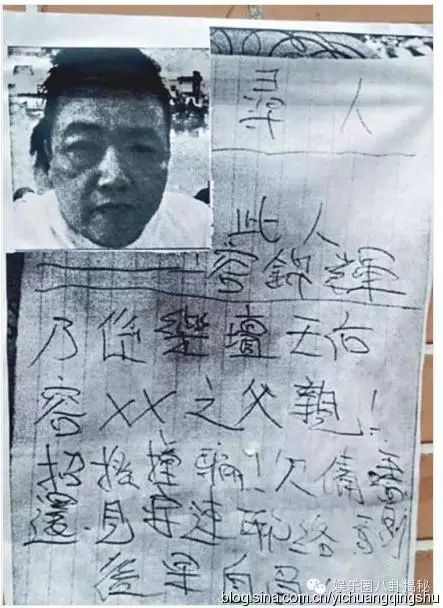 尋人
此人
容錦輝
乃係樂壇天后
容XX之父親!
招搖撞騙!欠債
還.見字速聯絡
後果自負
娱乐圈八卦揭秘
blog.sina.com.cn/yichuangqingshu